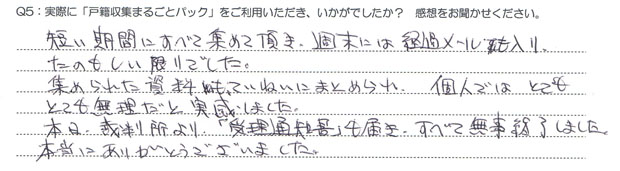 Q5：実際に「戸籍収集まるごとパック」をご利用いただき、いかがでしたか？ 感想をお聞かせください。
短い期間にすべて集めて頂き、週末には経過メールも入り、
たのもしい限りでした。
集められた資料もていねいにまとめられ、個人ではとても
とても無理だと実感しました。
本日、裁判所より、「受理通知書」も届き、すべて無事終了しました。
本当にありがとうございました。